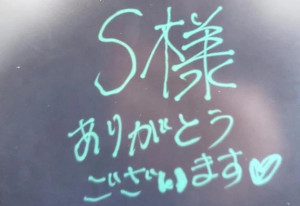 S様
ありがとう
ございます♡